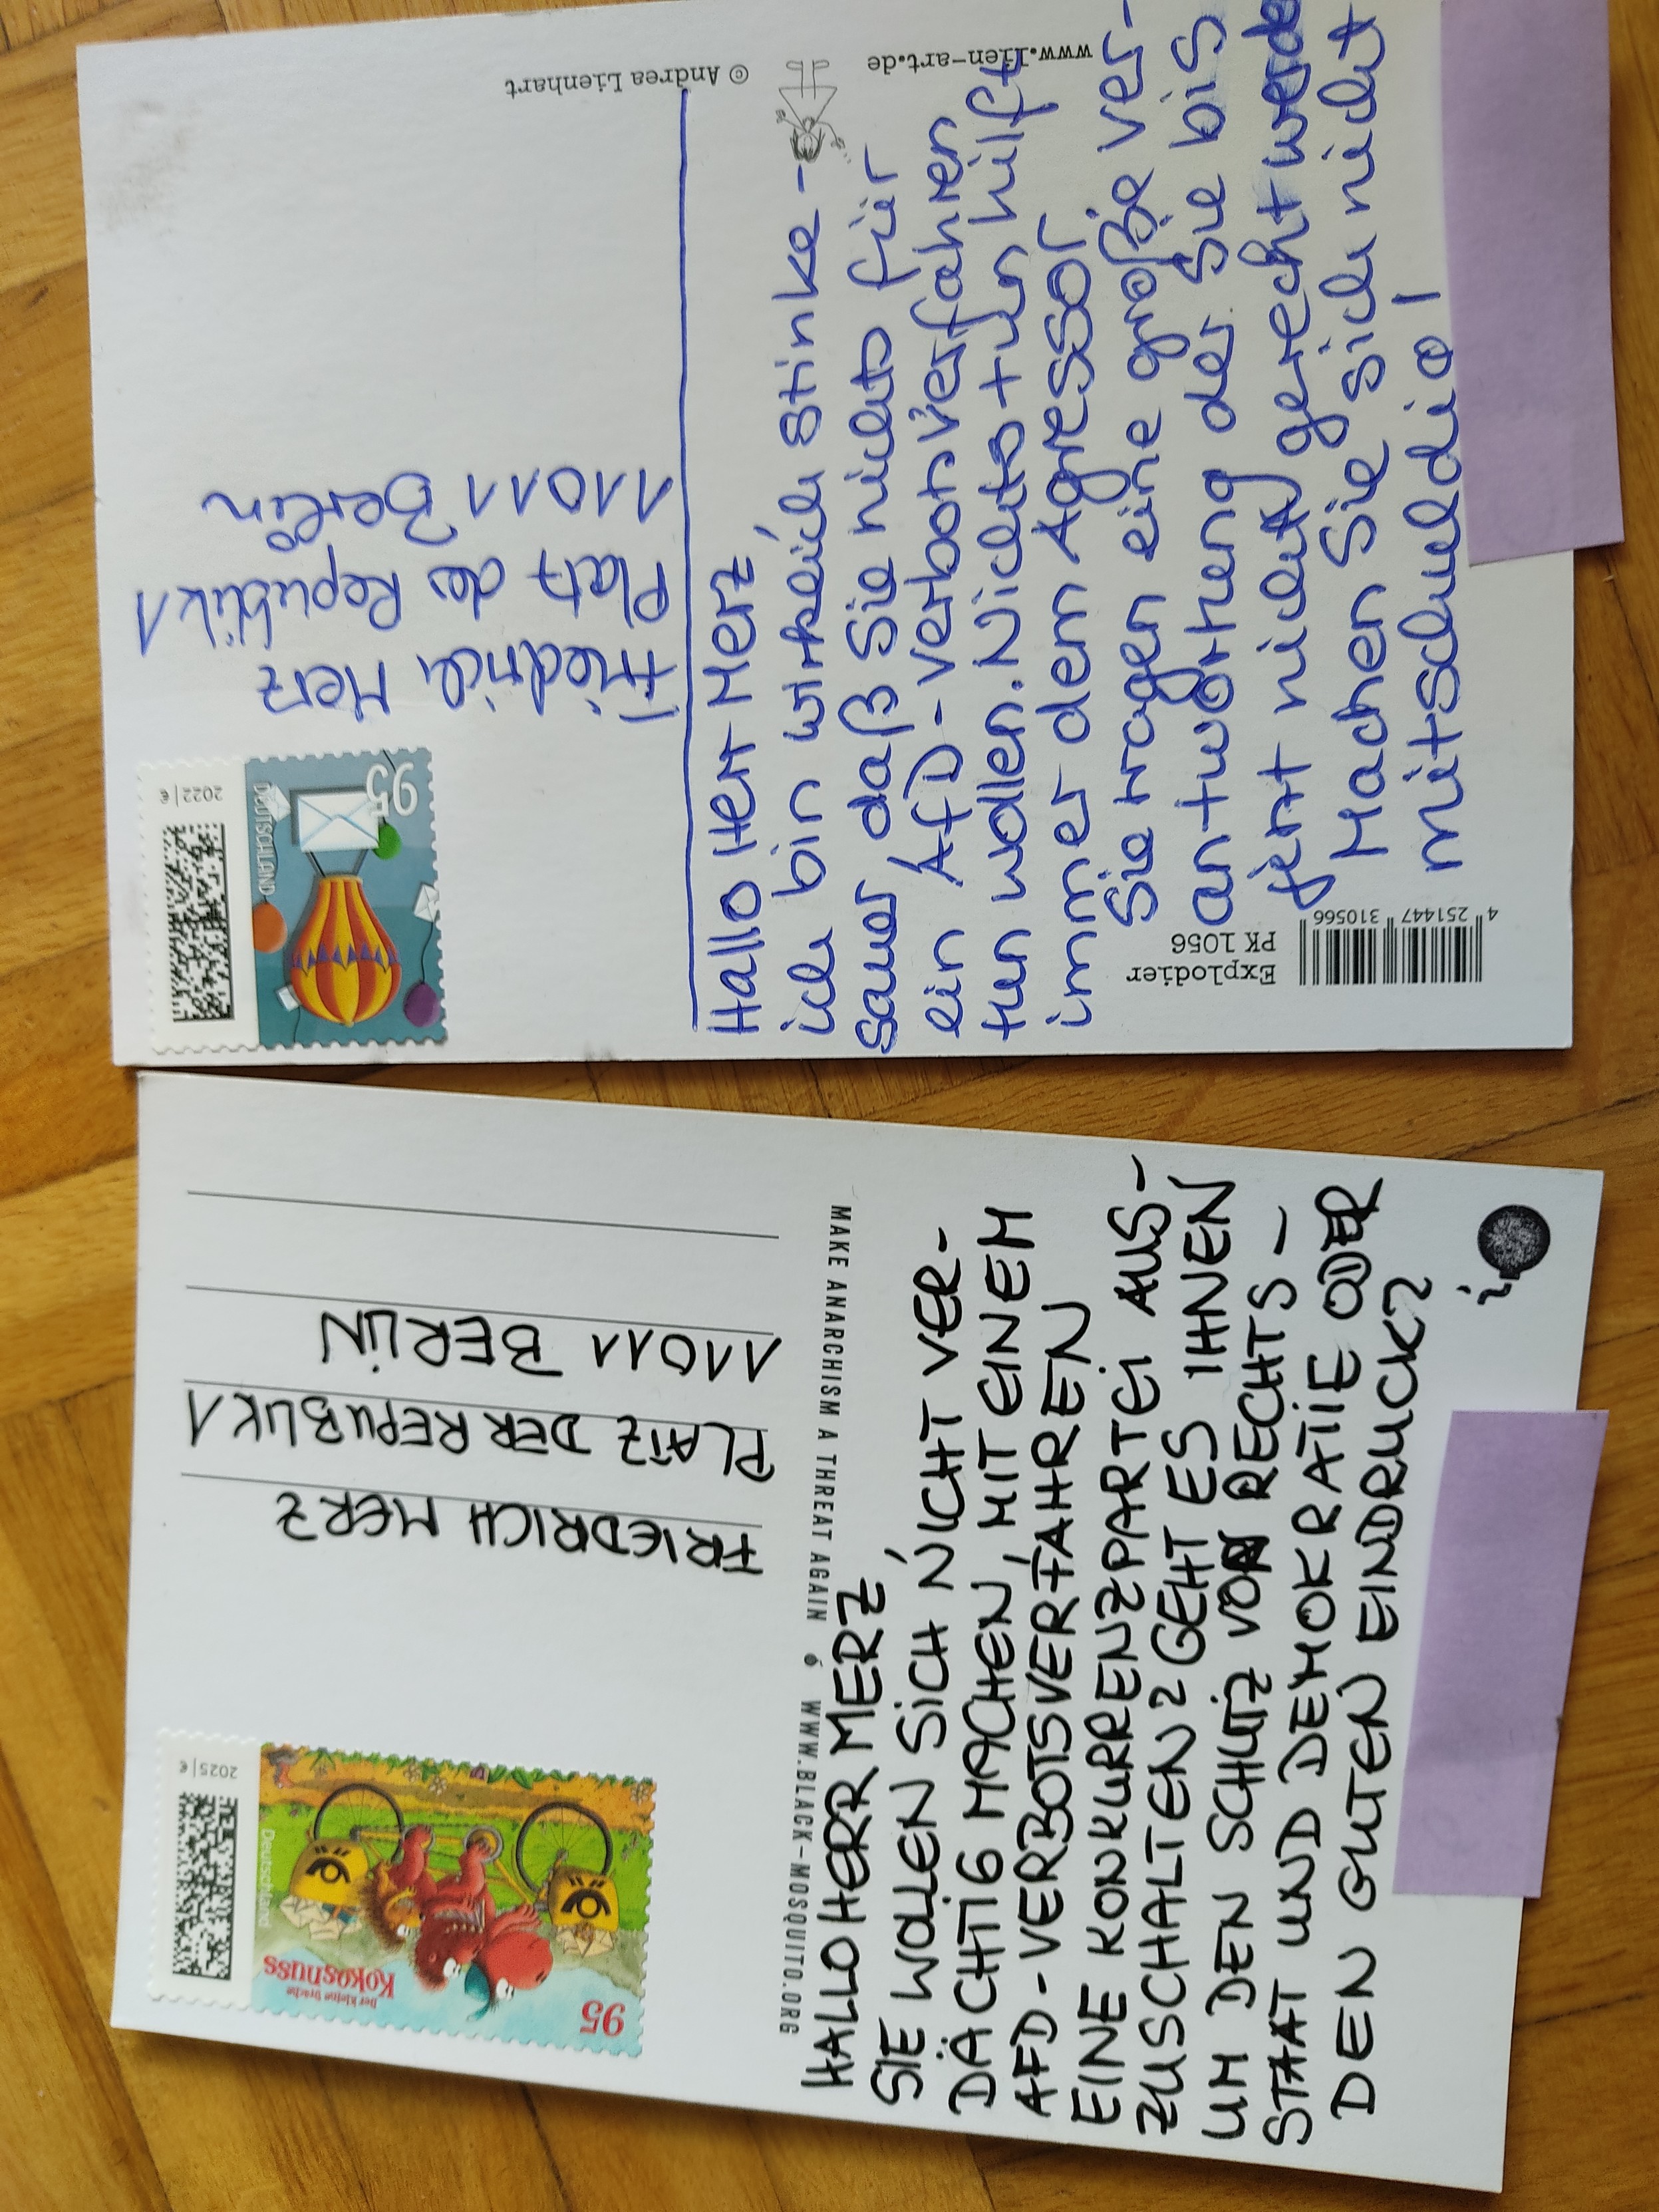 © Andrea Lienhart
www.lien-art.de
2022 | €
DEUTSCHLAND
95
Friedrich Merz
Platz der Republik 1
11011 Berlin
Hallo Herr Merz,
ich bin wirklich stinke-
sauer daß Sie nichts für
ein AfD-verbotsverfahren
tun wollen. Nichts tun hilft
immer dem Agressor
Sie tragen eine große ver-
antwortung der Sie bis
jetzt nicht gerecht werden
Machen Sie sich nicht
mitschuldig!
Explodier
PK 1056
4 251447 310566
2025 | €
Deutschland
Der kleine Drache
Kokosnuss
95
FRIEDRICH MERZ
PLATZ DER REPUBLIK 1
11011 BERLIN
MAKE ANARCHISM A THREAT AGAIN WWW.BLACK-MOSQUITO.ORG
HALLO HERR MERZ,
SIE WOLLEN SICH NICHT VER-
DÄCHTIG MACHEN, MIT EINEM
AFD-VERBOTSVERFAHREN
EINE KONKURRENZPARTEI AUS-
ZUSCHALTEN? GEHT ES IHNEN
UM DEN SCHUTZ VON RECHTS-
STAAT UND DEMOKRATIE ODER
DEN GUTEN EINDRUCK?